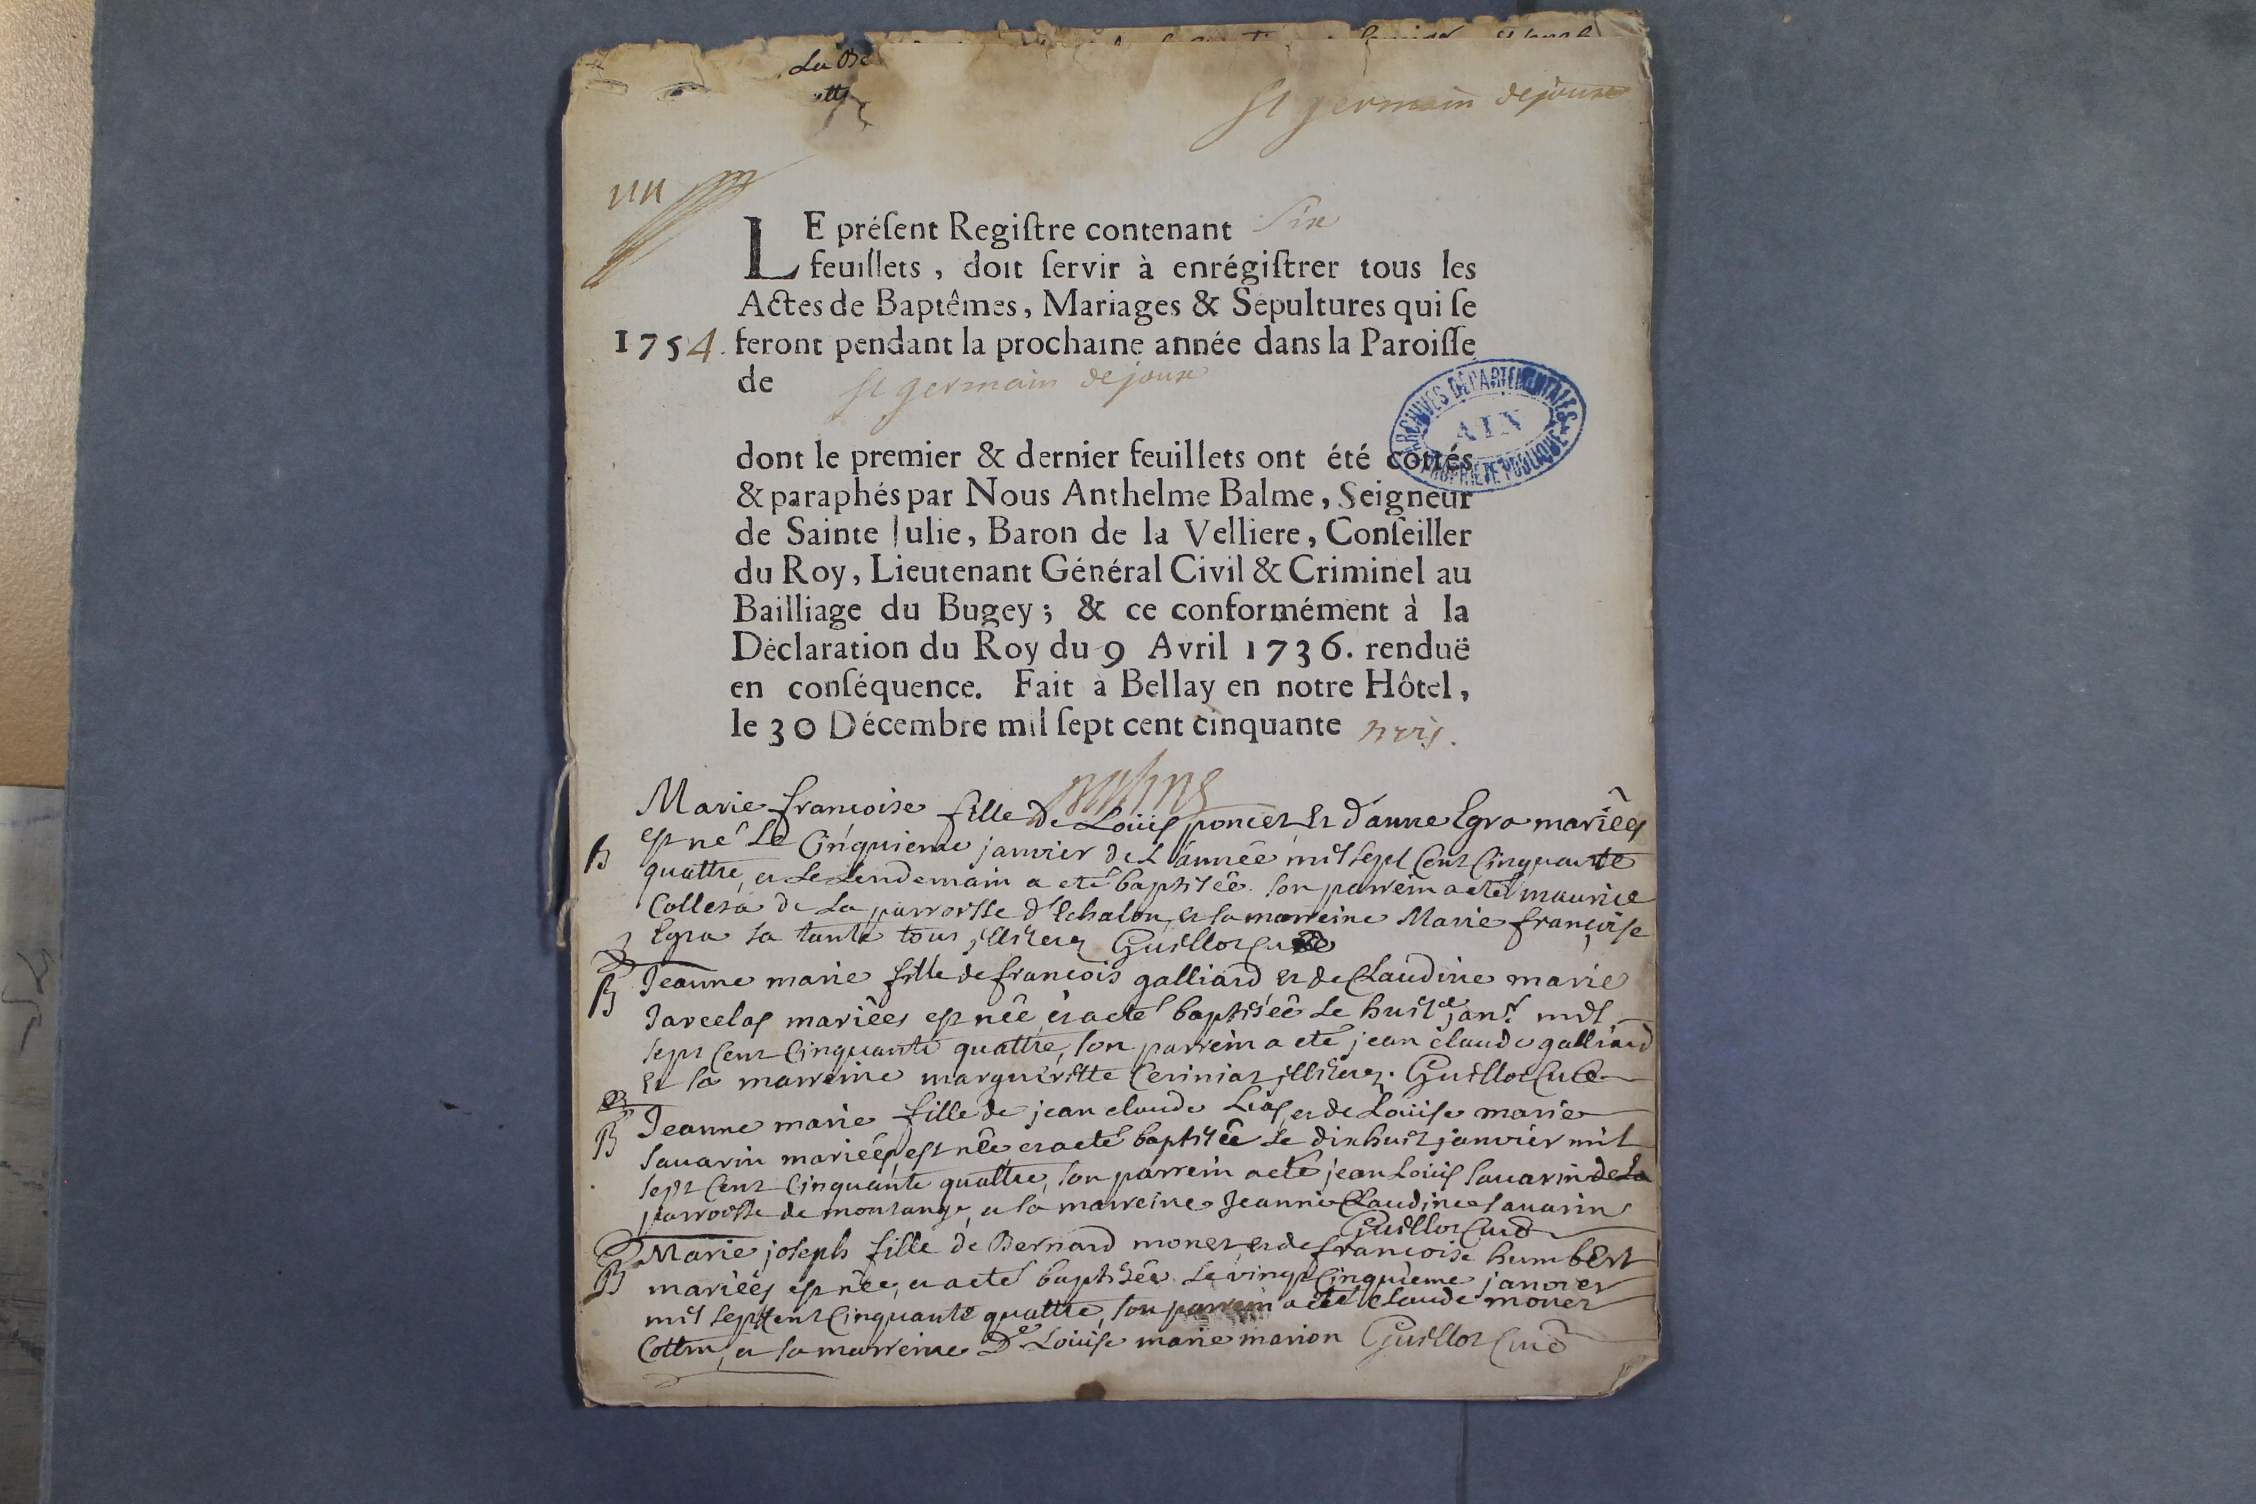 La Be
st germain dejoux
un
LE préſent Regiſtre contenant Six
feuillets, doit ſervir à enrégiſtrer tous les
Actes de Baptêmes, Mariages & Sépultures qui ſe
1754. feront pendant la prochaine année dans la Paroiſſe
de st germain dejoux
ARCHIVES DÉPARTEMENTALES
AIN
PROPRIÉTÉ PUBLIQUE
dont le premier & dernier feuillets ont été cottés
& paraphés par Nous Anthelme Balme, Seigneur
de Sainte Julie, Baron de la Velliere, Conſeiller
du Roy, Lieutenant Général Civil & Criminel au
Bailliage du Bugey; & ce conformément à la
Déclaration du Roy du 9 Avril 1736. renduë
en conſéquence. Fait à Bellay en notre Hôtel,
le 30 Décembre mil ſept cent cinquante trois.
Marie françoise fille de Loüis poncet et d'anne Egra mariées
B est né Le Cinquieme janvier de L'année mil sept Cent Cinquante
quattre, et Le Lendemain a eté baptisée. son parrein a eté maurice
Collera de La parroisse d'Echalon, et sa marreine Marie françoise
Egra sa tante tous illiterez Guillot Curé
B Jeanne marie fille de françois galliard et de Claudine marie
Jarcelas mariées est née et a eté baptisée Le huite janr. mil
sept Cent Cinquante quattre, son parrein a eté jean claude galliard
Et sa marreine margueritte Ceriniat illiterez. Guillot Curé
B Jeanne marie fille de jean claude Lias et de Loüise marie
Savarin mariées, est née, et a eté baptisée Le dix huit janvier mil
sept Cent Cinquante quattre, son parrein a eté jean Loüis Savarin de La
parroisse de montange, et sa marreine Jeanne Claudine Savarin
Guillot Curé
B Marie joseph fille de Bernard monet et de françoise humbert
mariées est née, et a eté baptisée Le vingt Cinquieme janvier
mil sept Cent Cinquante quattre, son parrein a eté Claude monet
Cottin, et sa marreine De. Loüise marie marion Guillot Curé